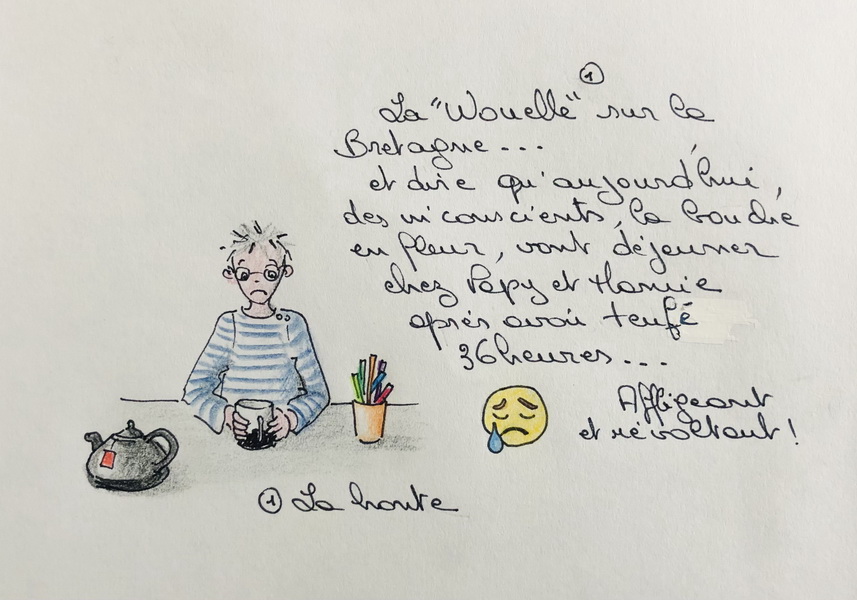 ①
La "Wouelle" sur la
Bretagne...
et dire qu'aujourd'hui,
des inconscients, la bouche
en fleur, vont déjeuner
chez Papy et Mamie
après avoir teufé
36 heures...
Affligeant
et révoltant !
① La honte